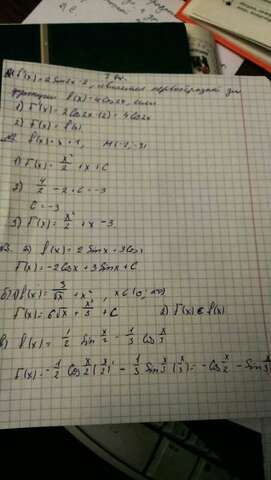 F(x) = 2 sin 2x - 2, является первообразной для
функции f(x) = 4 cos 2x, если
1) F'(x) = 2 cos 2x · (2) = 4 cos 2x
2) F'(x) = f(x)
f(x) = x + 1, M(-2; -3)
1) F(x) = x²/2 + x + C
2) 4/2 - 2 + C = -3
C = -3
3) F(x) = x²/2 + x - 3
№3. а) f(x) = 2 sin x + 3 cos x
F(x) = -2 cos x + 3 sin x + C
б) 1) f(x) = 3/√x + x², x ∈ (0; ∞)
F(x) = 6√x + x³/3 + C 2) F(x) ∈ f(x)
в) f(x) = 1/2 sin x/2 - 1/3 cos x/3
F(x) = -1/2 cos x/2 (x/2)' - 1/3 sin x/3 (x/3)' = -cos x/2 - sin x/3